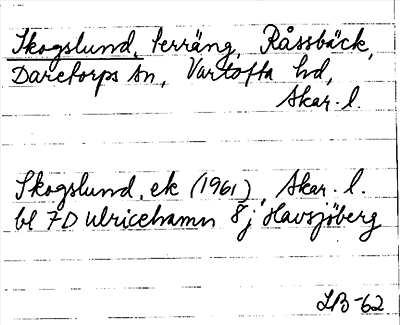 Skogslund, terräng, Råssbäck,
Daretorps sn, Vartofta hd,
Skar. l.
Skogslund, ek (1961), Skar. l.
bl 7D Ulricehamn 8j Havsjöberg
LB-62